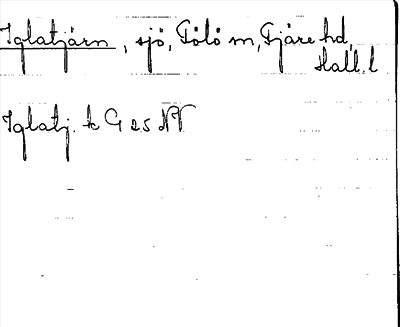 Iglatjärn, sjö, Fölö sn, Fjäre hd,
Hall. l
Iglatj. k G 25 NV